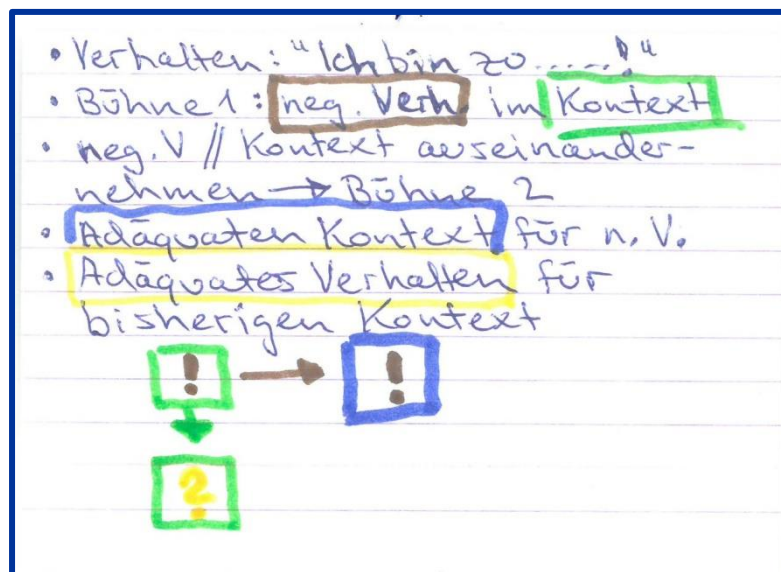 • Verhalten: "Ich bin zo.....!"
• Bühne 1: neg. Verh. im Kontext
• neg. V // Kontext auseinander-
nehmen → Bühne 2
• Adäquaten Kontext für n. V.
• Adäquates Verhalten für
bisherigen Kontext
! → !
?